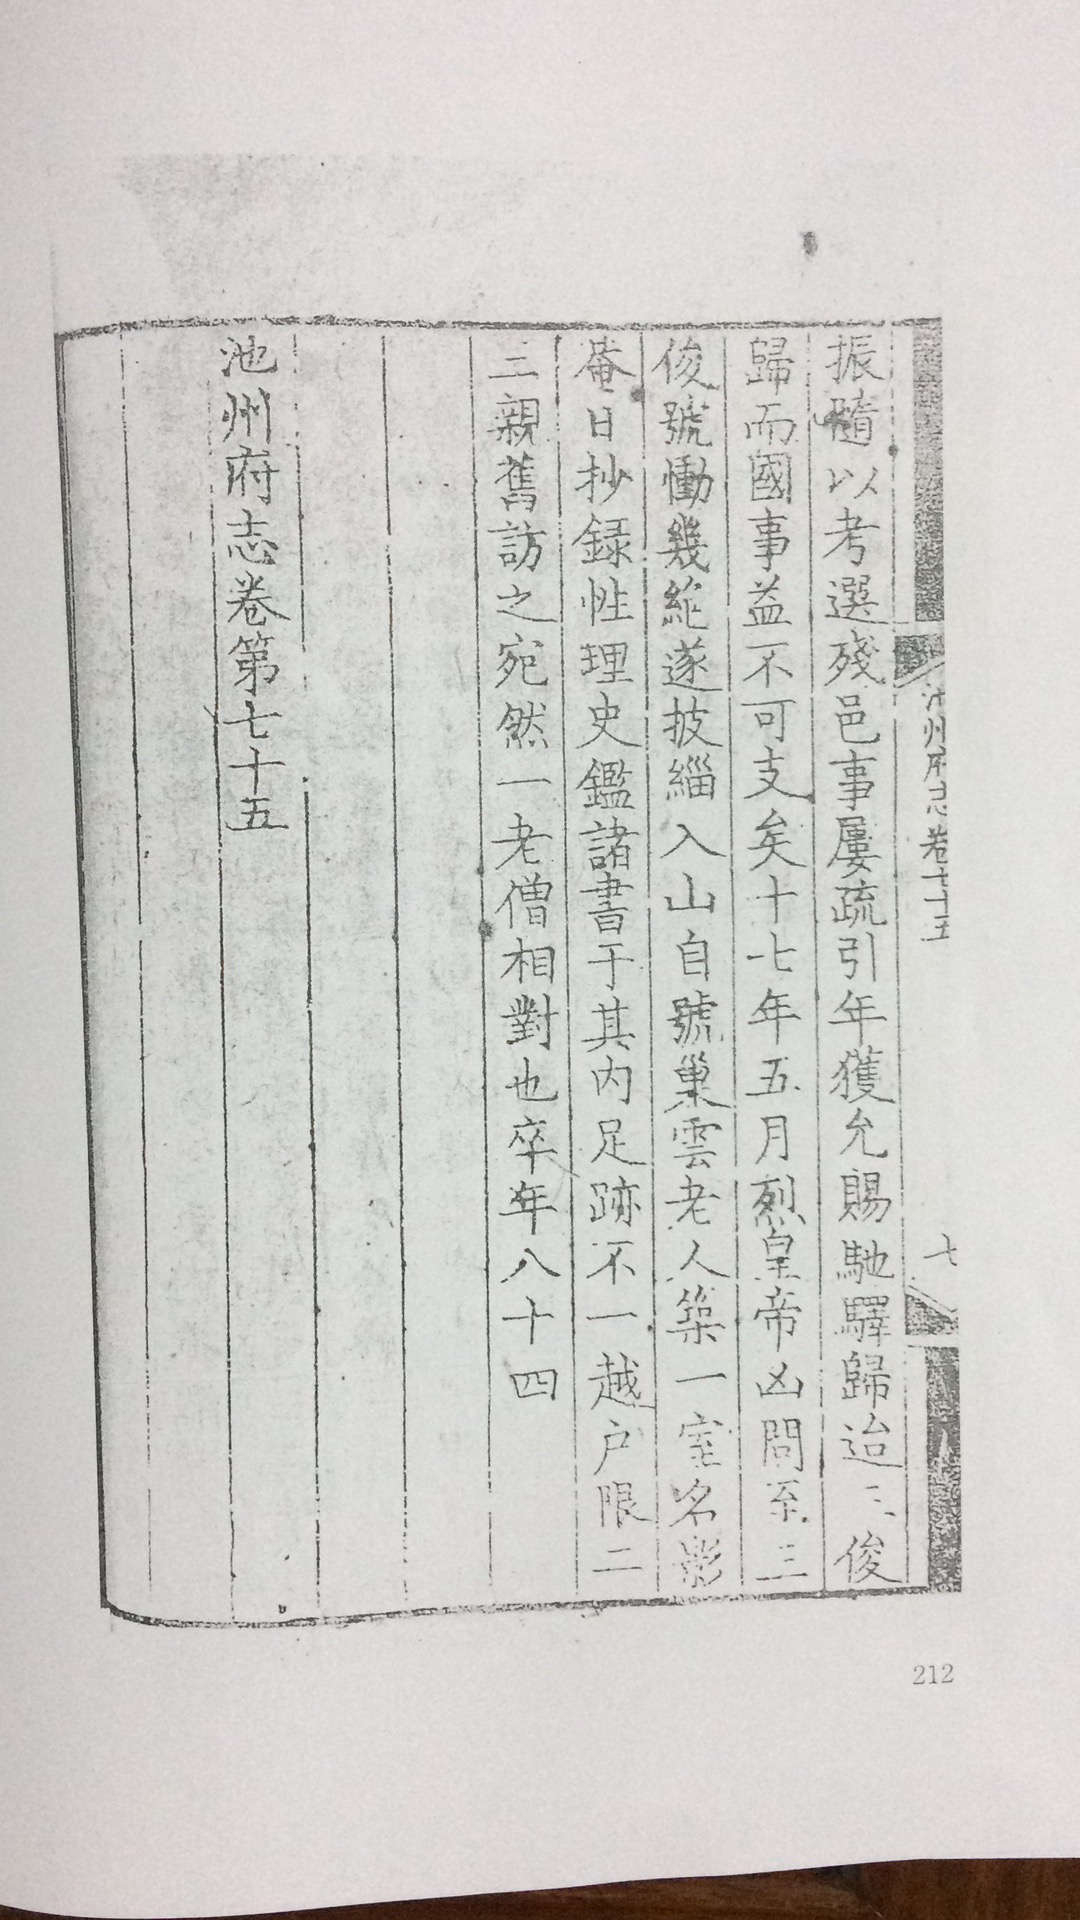 池州府志卷七十五
七
振髓以考選殘邑事屢疏引年獲允賜馳驛歸迨三俊
歸而國事益不可支矣十七年五月烈皇帝凶問至三
俊號慟幾絕遂披緇入山自號巢雲老人築一室名影
菴日抄録性理史鑑諸書于其内足跡不一越户限二
三親舊訪之宛然一老僧相對也卒年八十四
池州府志卷第七十五
212